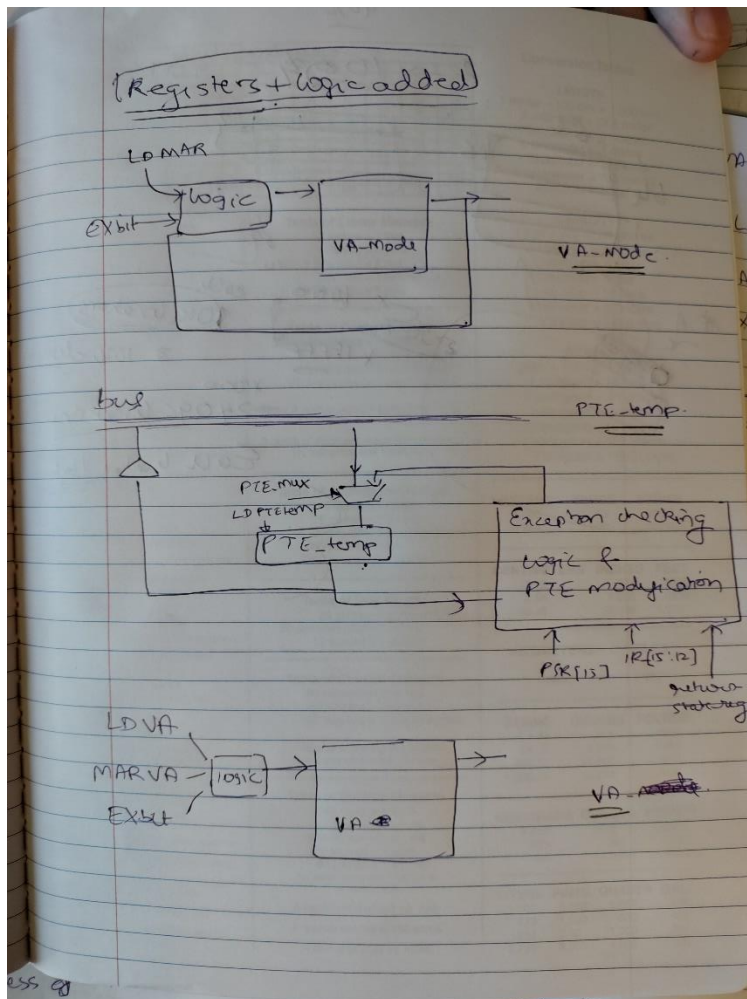 Registers + Logic added
LD MAR
Logic
EX bit
VA_Mode
VA_Mode.
bus
PTE_temp.
PTE_mux
LDPTEtemp
PTE_temp
Exception checking
Logic &
PTE modification
PSR[15]
IR[15:12]
return
state reg
LD VA
MARVA
logic
EXbit
VA
VA
ess of